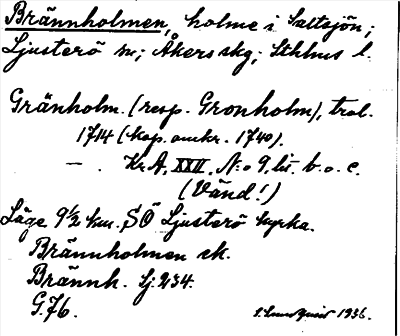 Brännholmen, holme i Saltsjön;
Ljusterö sn; Åkers skg; Sthlms l.
Gränholm. (resp. Gronholm), trol.
1714 (kop. omkr. 1740).
— . Kr.A. XXII. N:o 9, lit. b. o. c.
(Vänd!)
Läge 9½ km. SÖ Ljusterö kyrka.
Brännholmen ek.
Brännh. Sj. 234.
G. 76.
1936.